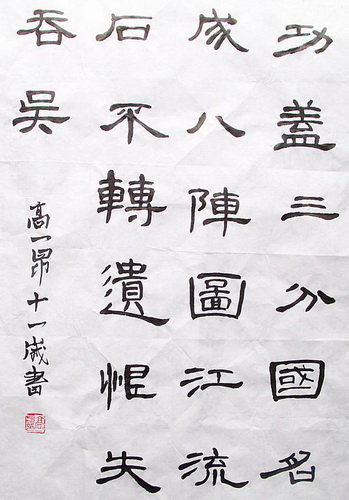 功盖三分國名
成八陣圖江流
石不轉遺恨失
吞吳
高一昂十一歲書